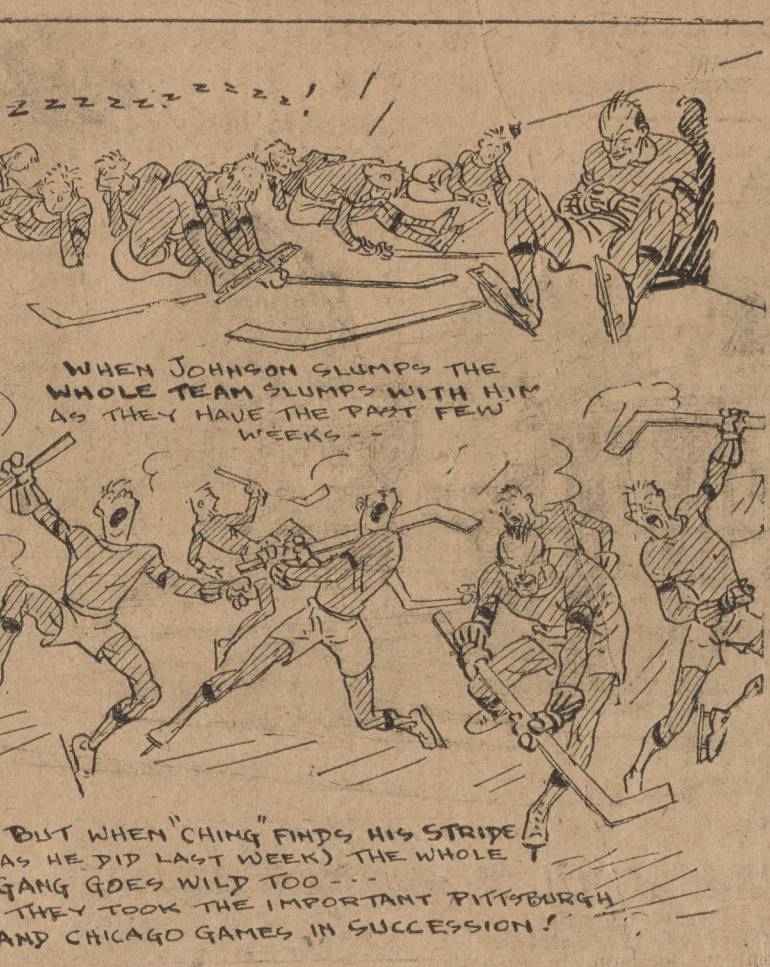 Z Z Z Z Z Z Z Z Z Z Z Z !
WHEN JOHNSON SLUMPS THE
WHOLE TEAM SLUMPS WITH HIM
AS THEY HAVE THE PAST FEW
WEEKS --
BUT WHEN "CHING" FINDS HIS STRIDE
AS HE DID LAST WEEK) THE WHOLE
GANG GOES WILD TOO ---
THEY TOOK THE IMPORTANT PITTSBURGH
AND CHICAGO GAMES IN SUCCESSION!